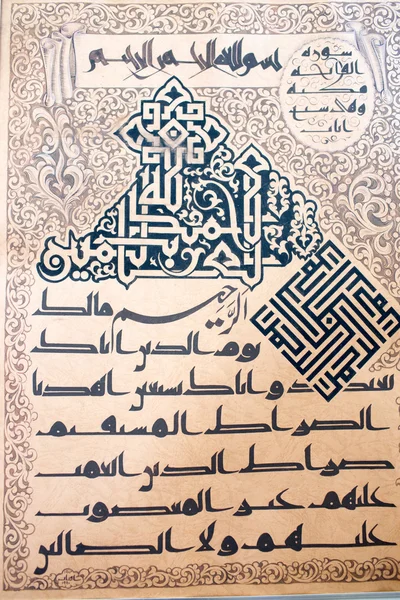 بسم الله الرحمن الرحيم
سورة
الفاتحة
مكية
وهي سبع
آيات
الحمد لله
رب العالمين
الرحمن
الرحيم مالك
يوم الدين اياك
نعبد و اياك نستعين اهدنا
الصراط المستقيم
صراط الذين انعمت
عليهم غير المغضوب
عليهم ولا الضالين